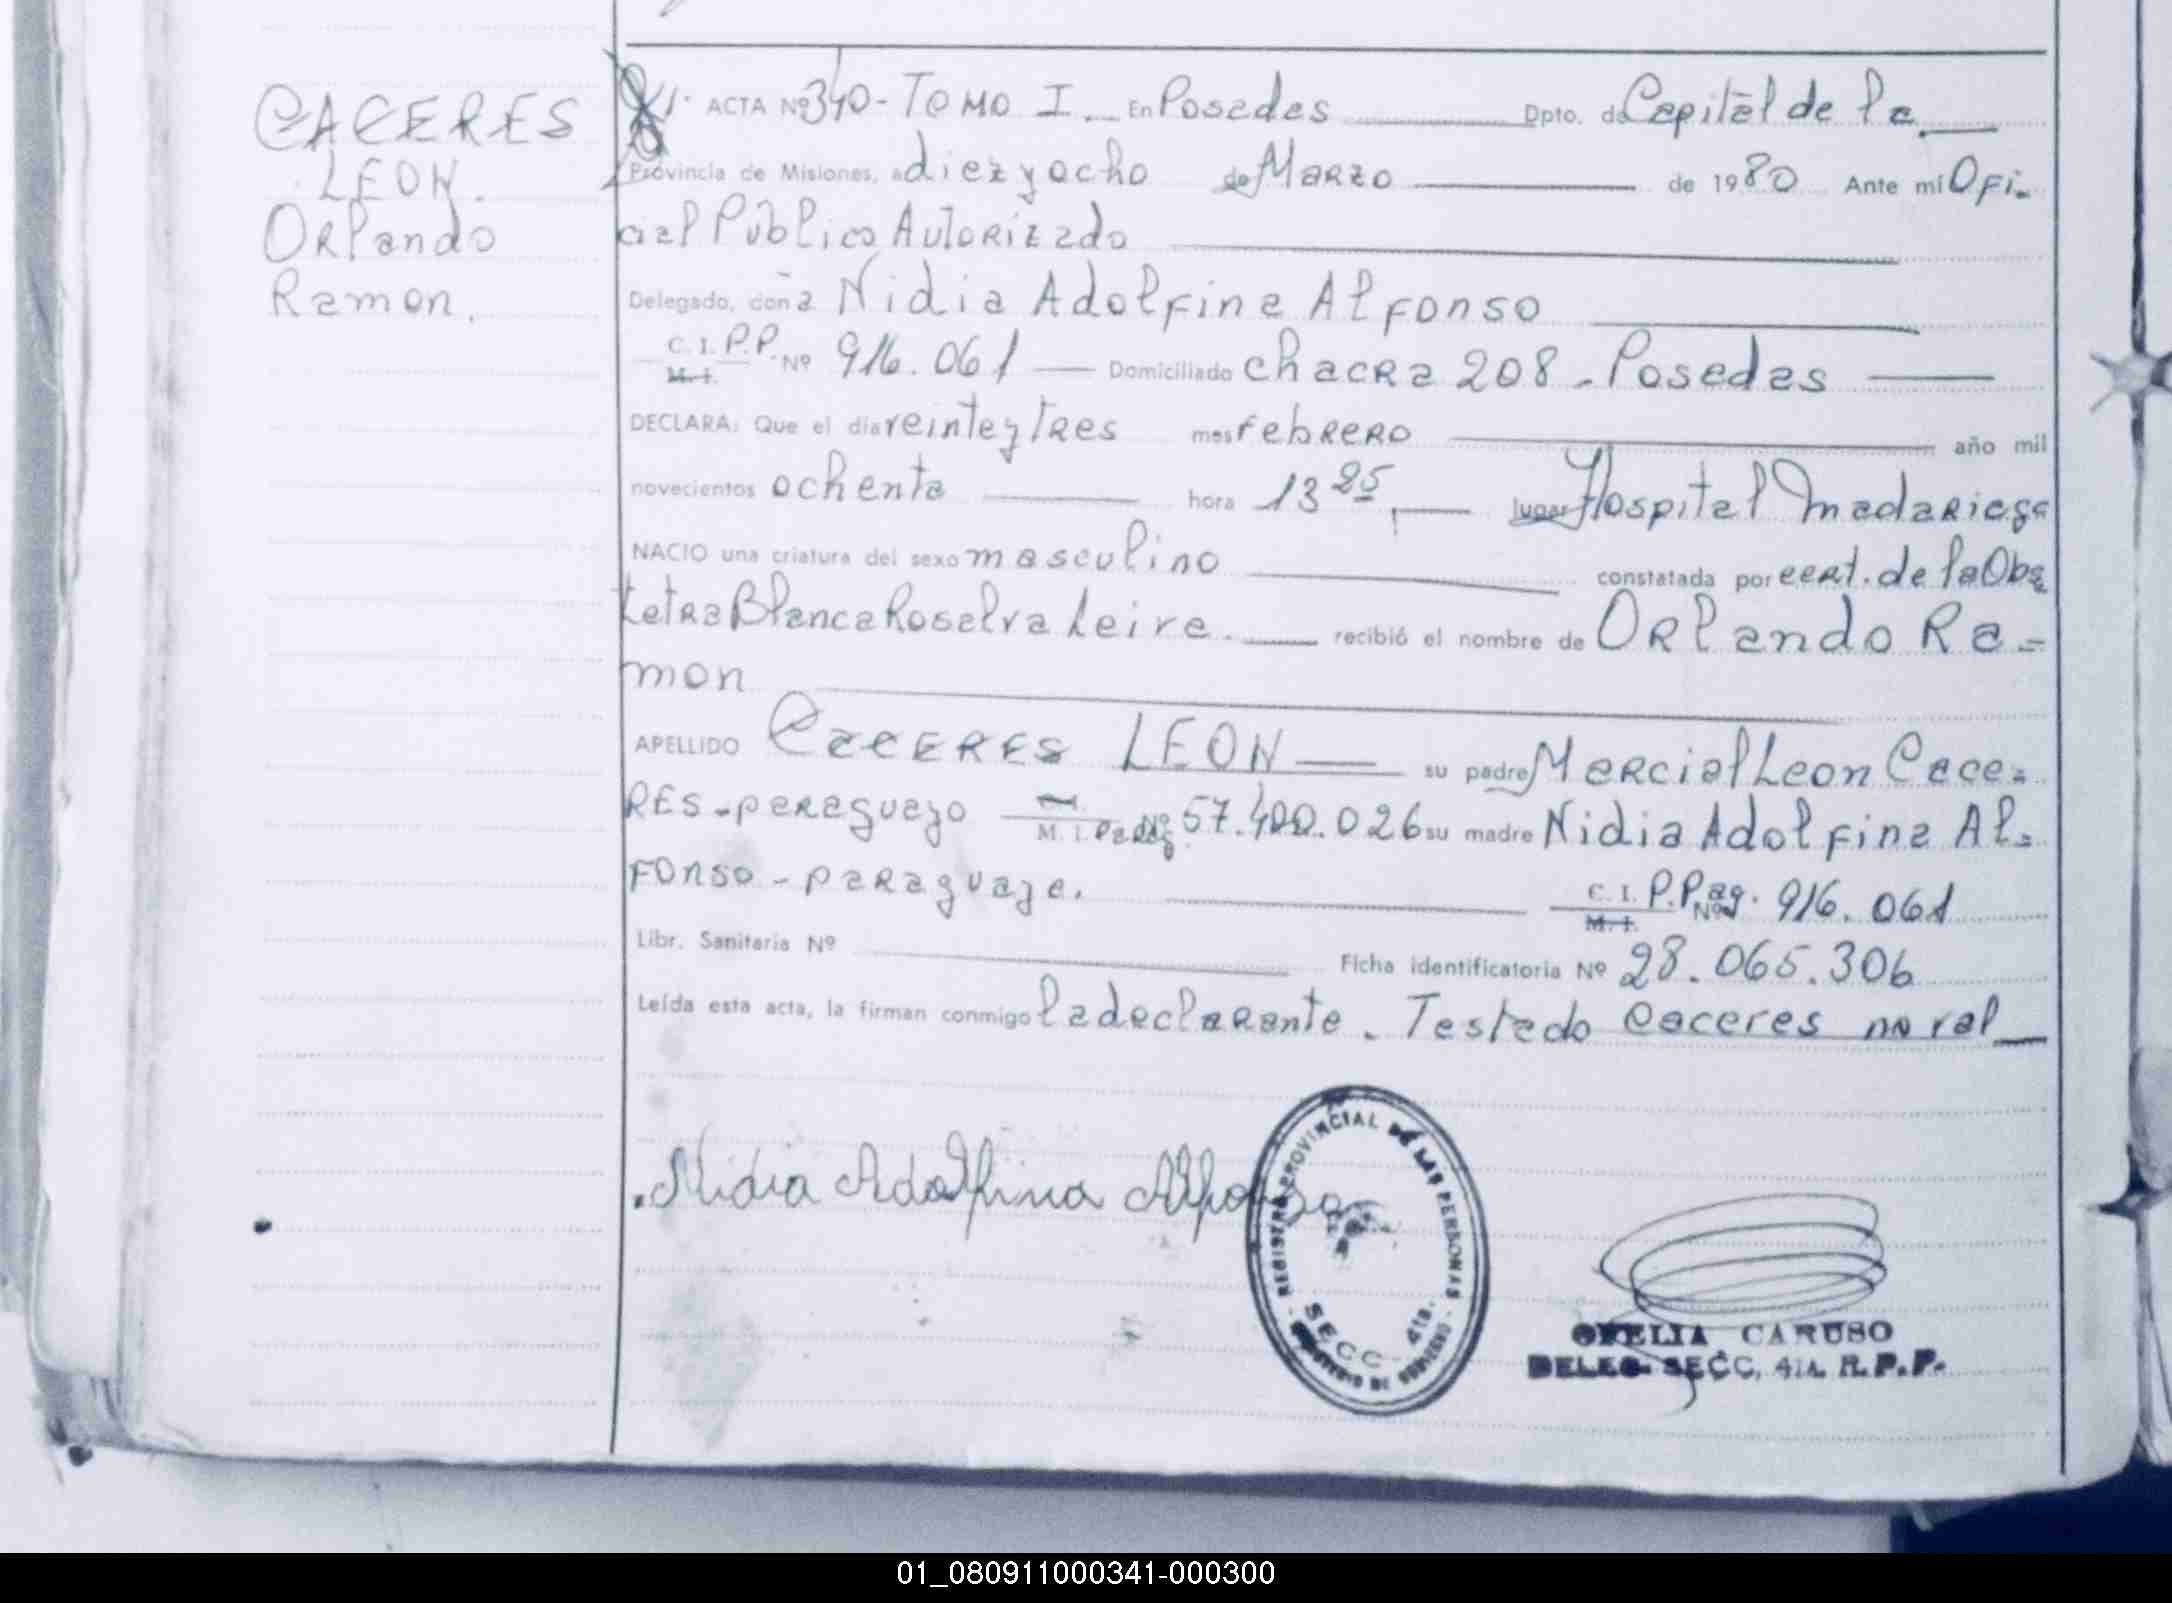 CACERES
LEON.
Orlando
Ramon.
1· ACTA Nº 340 - TOMO I. En Posadas Dpto. de Capital de la
Provincia de Misiones, a diez y ocho de Marzo de 1980 Ante mí Ofi-
cial Público Autorizado
Delegado, doña Nidia Adolfina Alfonso
C. I. P.P. M. I. Nº 916.061 Domiciliado chacra 208 - Posadas
DECLARA: Que el día veinteytres mes Febrero año mil
novecientos ochenta hora 13 25, lugar Hospital Madariaga
NACIO una criatura del sexo masculino constatada por cert. de la Obs
tetra Blanca Rosalva Leiva. recibió el nombre de Orlando Ra-
mon
APELLIDO CACERES LEON su padre Marcial Leon Cace-
RES - paraguayo M. I. Parag. Nº 57.400.026 su madre Nidia Adolfina Al-
fonso - paraguaya. C. I. P. Pag. M. I. Nº 916.061
Libr. Sanitaria Nº Ficha identificatoria Nº 28.065.306
Leída esta acta, la firman conmigo la declarante. Testado Caceres no val
Nidia Adolfina Alfonso
REGISTRO PROVINCIAL DE LAS PERSONAS
SECC 41a.
MINISTERIO DE GOBIERNO
OFELIA CARUSO
DELEG. SECC, 41A. R.P.P.
01_080911000341-000300